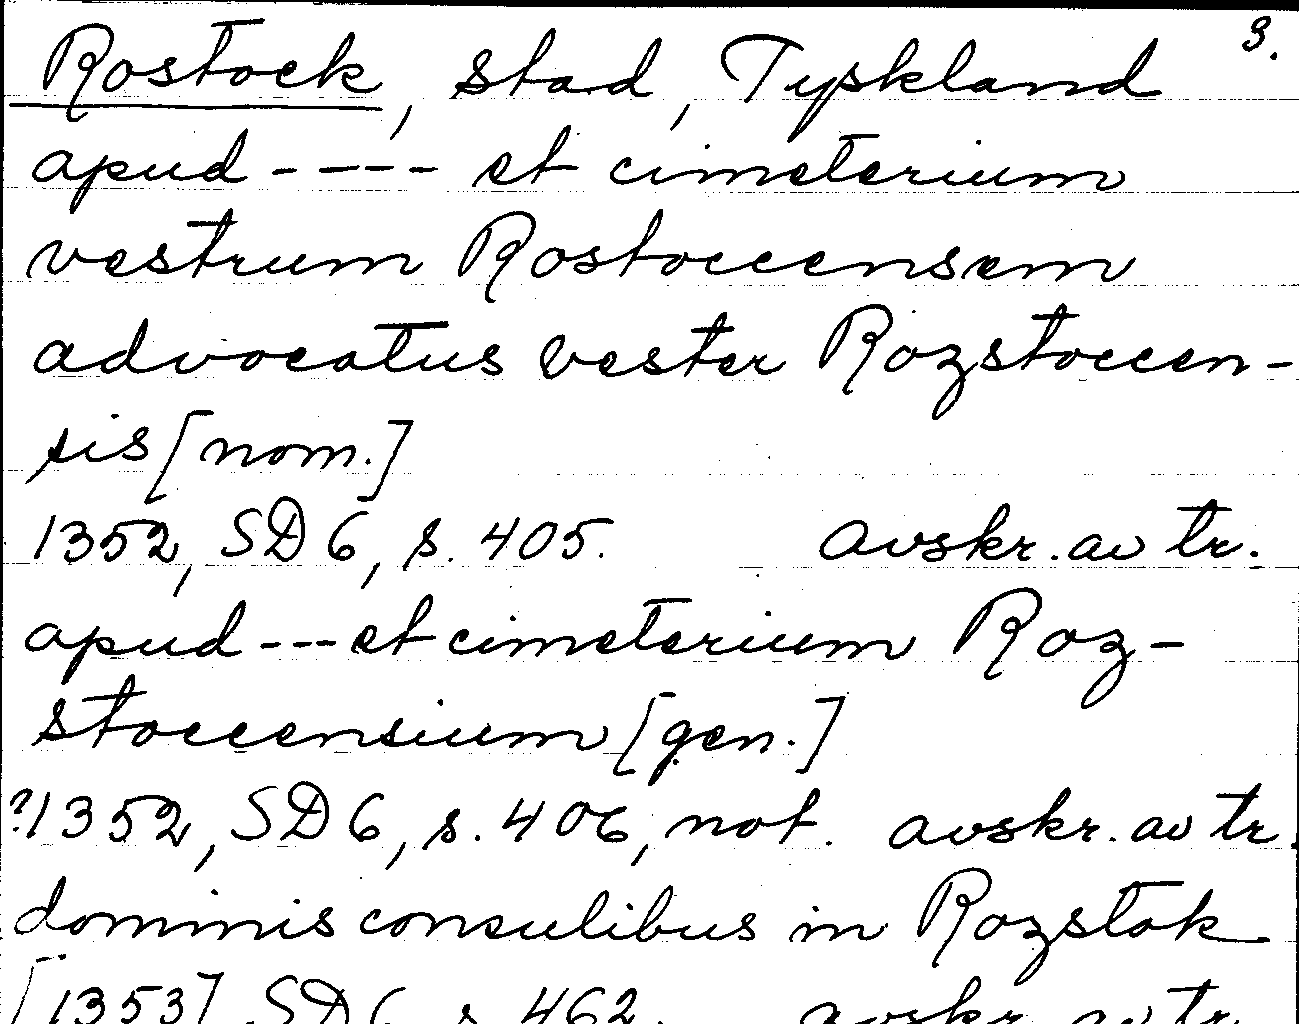 3.
Rostock, stad, Tyskland
apud ---- et cimeterium
vestrum Rostoccensem
advocatus vester Rozstoccen-
sis [nom.]
1352, SD 6, s. 405. avskr. av tr.
apud --- et cimeterium Roz-
stoccensium [gen.]
?1352, SD 6, s. 406, not. avskr. av tr.
dominis consulibus in Rozstok
[1353] SD 6 s. 462. avskr. av tr.